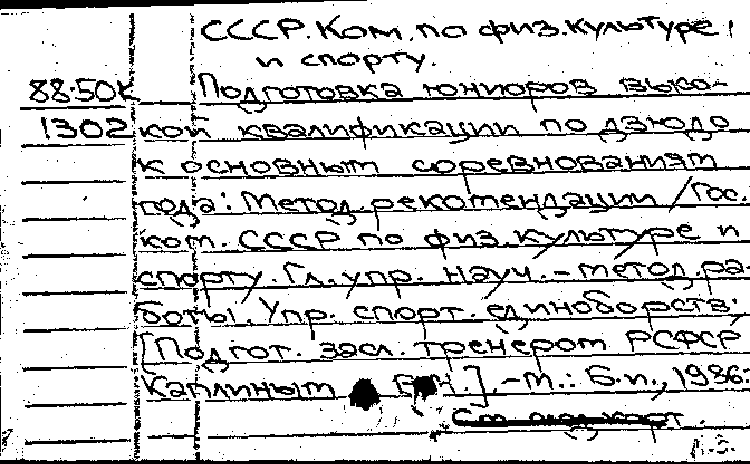 СССР. Ком. по физ. культуре
и спорту.
88-50К Подготовка юниоров высо-
1302 кой квалификации по дзюдо
к основным соревнованиям
года: Метод. рекомендации / Гос.
ком. СССР по физ. культуре и
спорту. Гл. упр. науч.-метод. ра-
боты. Упр. спорт. единоборств;
[Подгот. засл. тренером РСФСР
Каплиным]. - М.: Б.и., 1986.-
См. след. карт.